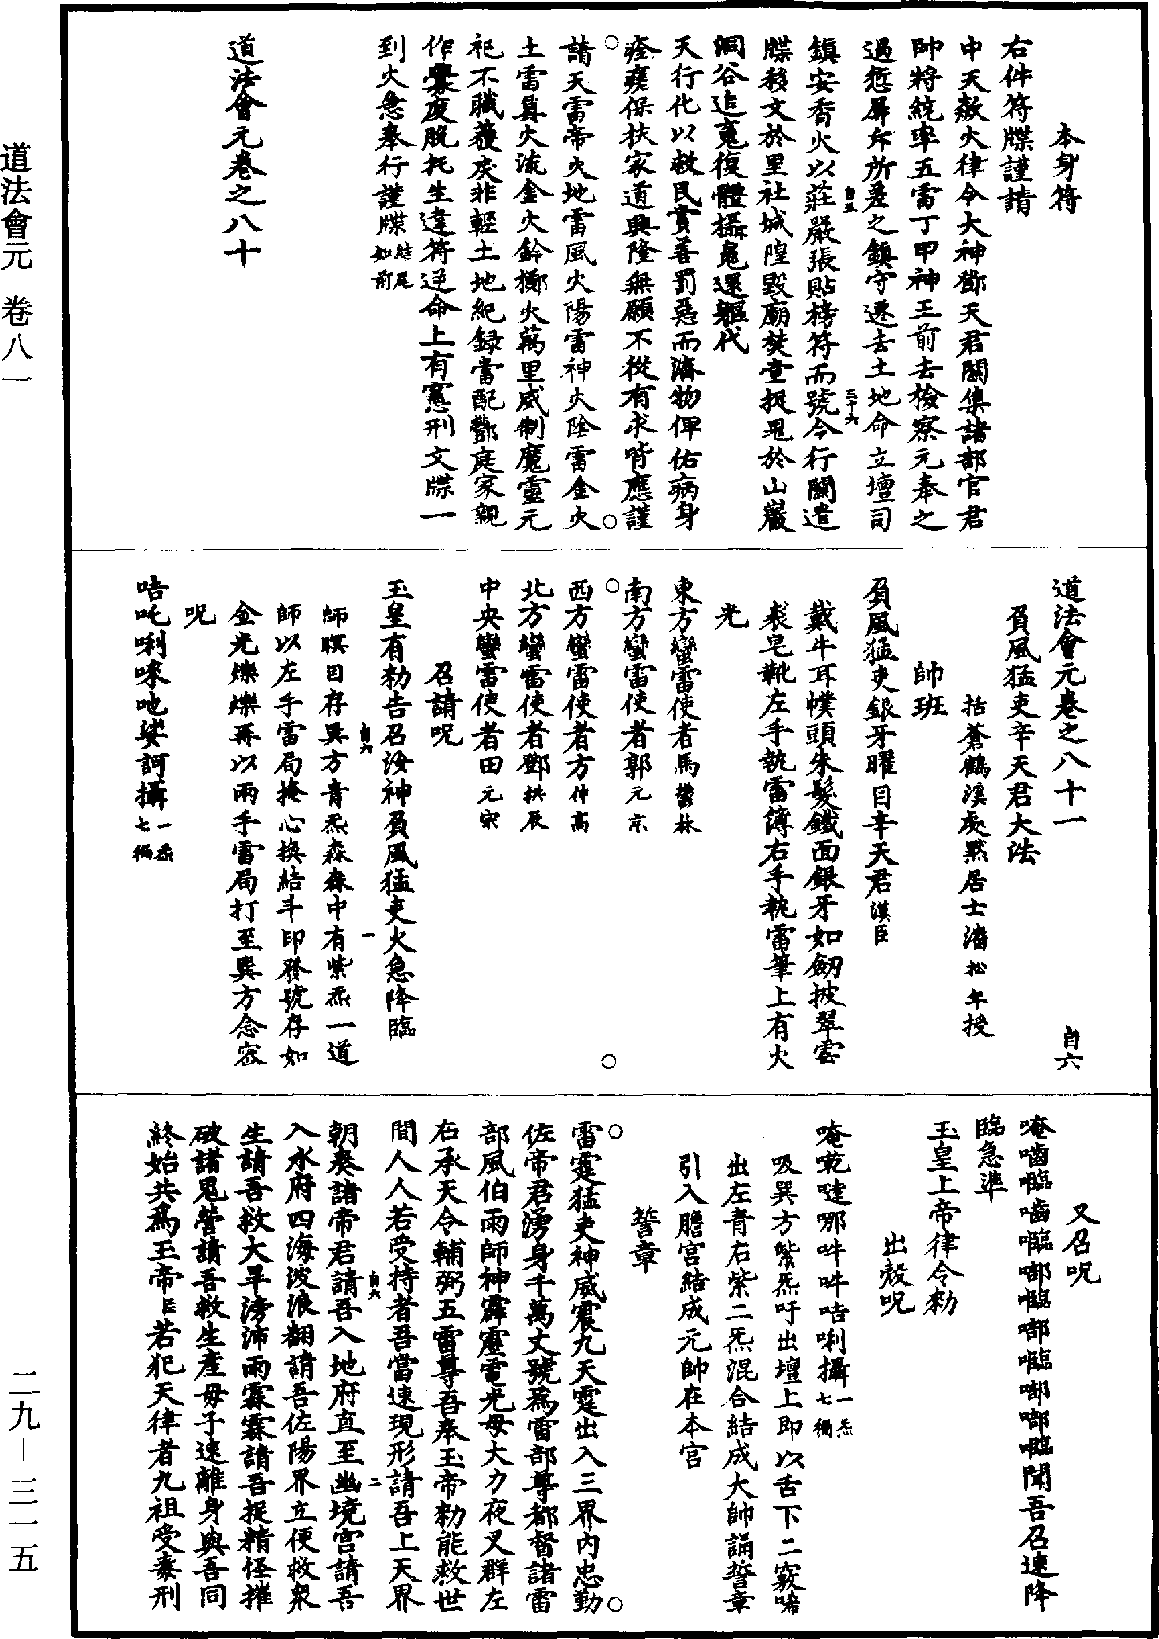 本身符
右件符牒謹請
中天欻火律令大神鄧天君關集諸部官君
帥將統率五雷丁甲神王前去檢察元奉之
過愆屏斥所差之鎮守遷去土地命立壇司
鎮安香火以莊嚴張貼榜符而號令行關遣
牒移文於里社城隍毀廟焚壇捉鬼於山巖
洞谷追䰟復體攝鬼還軀代
天行化以救民賞善罰惡而濟物俾佑病身
痊瘥保扶家道興隆無願不從有求皆應謹
請天雷帝火地雷風火陽雷神火陰雷金火
土雷真火流金火鈴擲火萬里威制魔靈元
祀不職蘐戾非輕土地紀録當配酆庭家親
作𤣥度脫托生違符逆命上有憲刑文牒一
到火急奉行謹牒結尾如前
道法會元卷之八十
道法會元卷之八十一
自六
負風猛吏辛天君大法
括蒼鶴溪處黙居士潘松年授
帥班
負風猛吏銀牙曜目辛天君漢臣
戴牛耳幞頭朱髮鐵面銀牙如劒披翠雲
裘皂靴左手執雷簿右手執雷筆上有火
光
東方蠻雷使者馬鬱林
南方蠻雷使者郭元京
西方蠻雷使者方仲高
北方蠻雷使者鄧拱辰
中央蠻雷使者田元宗
召請呪
玉皇有勑告召汝神負風猛吏火急降臨
師瞑目存巽方青炁森森中有紫炁一道
師以左手雷局掩心換結斗印發號存如
金光爍爍再以兩手雷局打至巽方念密
呪
咭吒唎㗚吔娑訶攝一炁七徧
又召呪
唵嚙𡄴嚙𡄴啷𡄴啷𡄴啷啷𡄴聞吾召速降
臨急準
玉皇上帝律令勑
出殻呪
唵乾㖿哪吽吽咭唎攝一炁七徧
吸巽方紫炁吁出壇上即以舌下二竅唏
出左青右紫二炁混合結成大帥誦誓章
引入膽宮結成元帥在本宮
誓章
雷霆猛吏神威震九天霆出入三界內忠勤
佐帝君湧身千萬丈號爲雷部尊都督諸雷
部風伯雨師神霹靂電光母大力夜叉群左
右承天令輔弼五雷尊吾奉玉帝勑能救世
間人人若受持者吾當速現形請吾上天界
朝奏諸帝君請吾入地府直至幽境宫請吾
入水府四海波浪翻請吾佐陽界立便救衆
生請吾救大旱滂沛雨霖霖請吾捉精怪摧
破諸鬼營請吾救生產母子速離身與吾同
終始共爲玉帝臣若犯天律者九祖受𡨚刑
道法會元 卷八一
二九－三一五